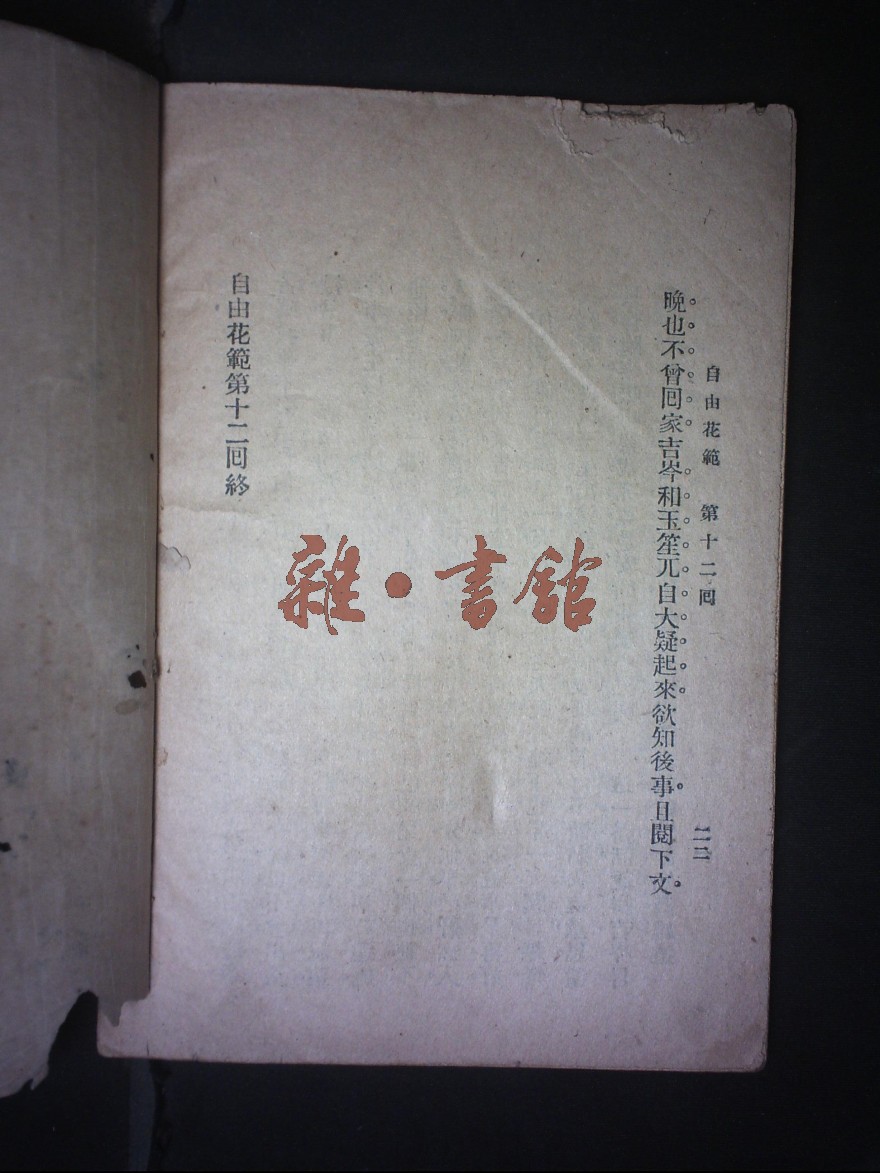 自由花範 第十二回 二二
晩也不曾回家吉岑和玉笙兀自大疑起來欲知後事且閱下文
自由花範第十二回終
雜·書舘